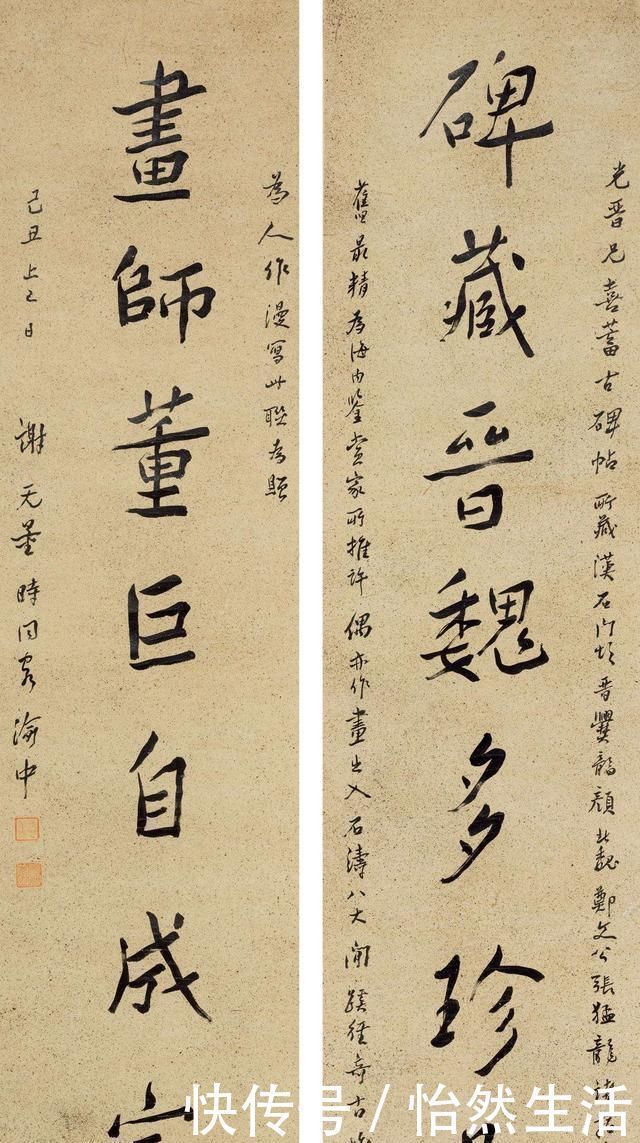 光晋兄喜蓄古碑帖所藏漢石门頌晋爨龍顔北魏鄭文公張猛龍諸
碑藏晋魏多珍
舊最精為海内鉴赏家所推许偶亦作畫出入石濤八大間蹊徑奇古
為人作漫寫此联為贈
畫師董巨自成
己丑上巳日 謝无量時同客渝中
快传号/怡然生活